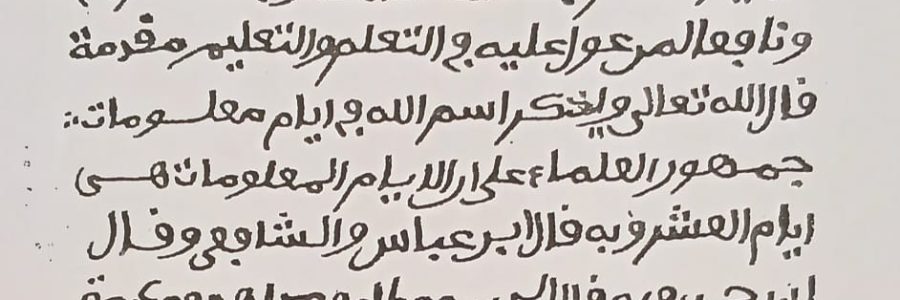 ونافعا لمن عول عليه في التعلم والتعليم مقدمة
قال الله تعالى ويذكر اسم الله في ايام معلومات
جمهور العلماء على ان الايام المعلومات هي
ايام العشر وبه قال ابن عباس والشافعي وقال